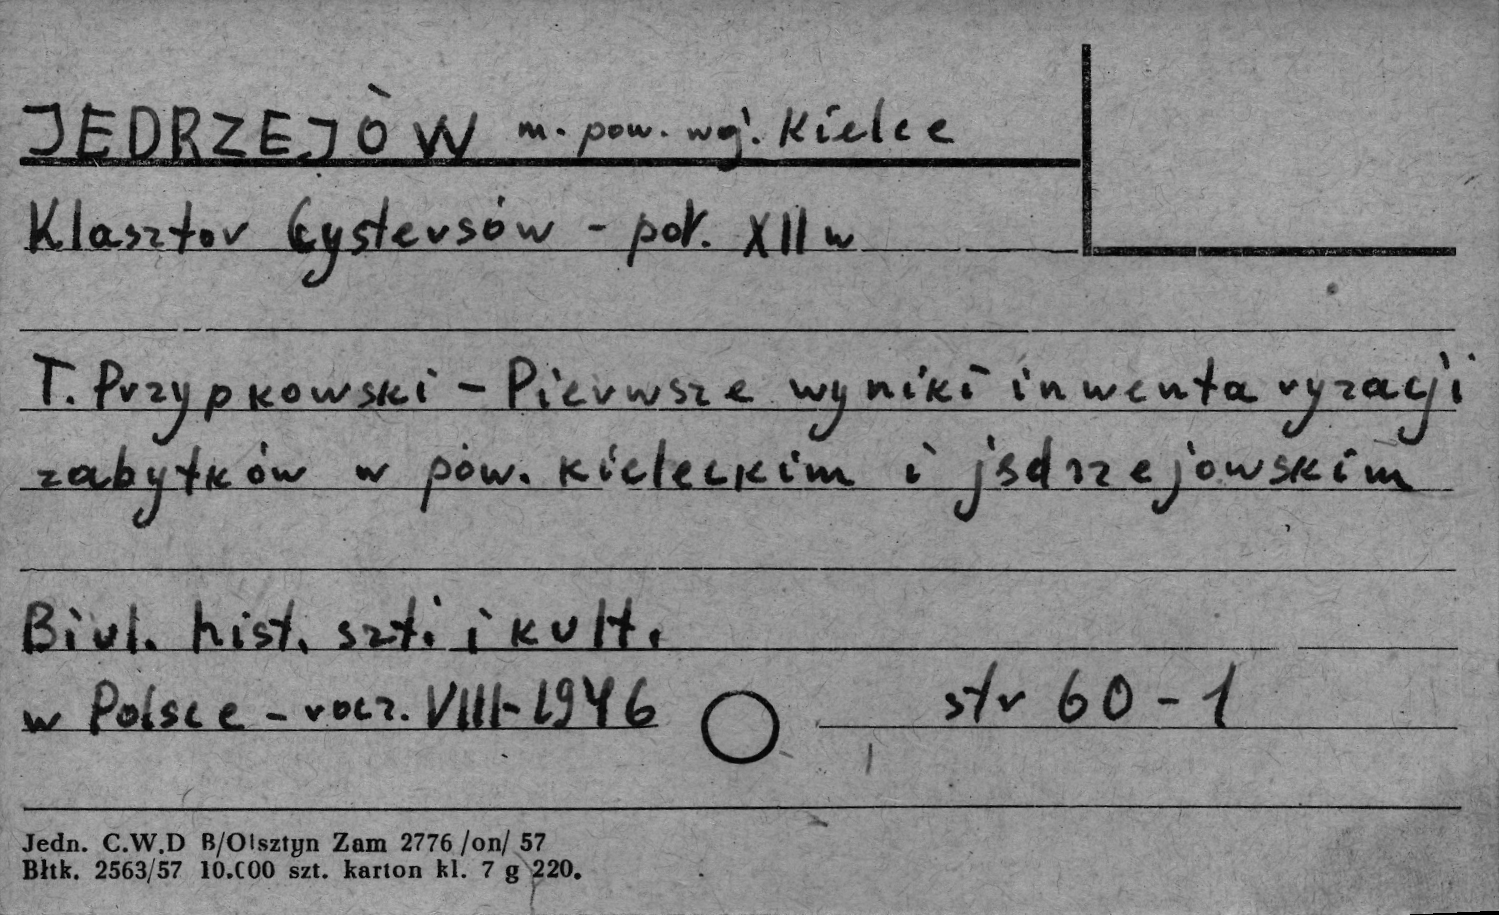 JEDRZEJÓW m. pow. woj. Kielce
Klasztor Cystersów - poł. XII w
T. Przypkowski - Pierwsze wyniki inwentaryzacji
zabytków w pow. kieleckim i jedrzejowskim
Biul. hist. szt. i kult.
w Polsce - rocz. VIII-1946 str 60-1
Jedn. C.W.D B/Olsztyn Zam 2776 /on/ 57
Błtk. 2563/57 10.000 szt. karton kl. 7 g 220.